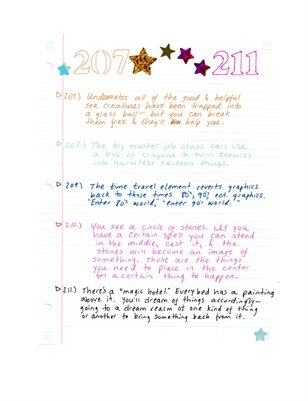 207 211
207.) Underwater all of the good & helpful
sea creatures have been trapped into
a glass ball— but you can break
them free & they'll help you.
208.) The toy master job class can use
a box of crayons to turn enemies
into harmless cartoon things.
209.) The time travel element reverts graphics
back to those times. 80's, 90's, ect. graphics.
"Enter 80's world," "enter 90's world."
210.) You see a circle of stones. If you
have a certain spell you can stand
in the middle, cast it, & the
stones will become an image of
something. Those are the things
you need to place in the center
for a certain thing to happen.
211.) There's a "magic hotel." Every bed has a painting
above it. You'll dream of things accordingly—
going to a dream realm of one kind of thing
or another to bring something back from it.